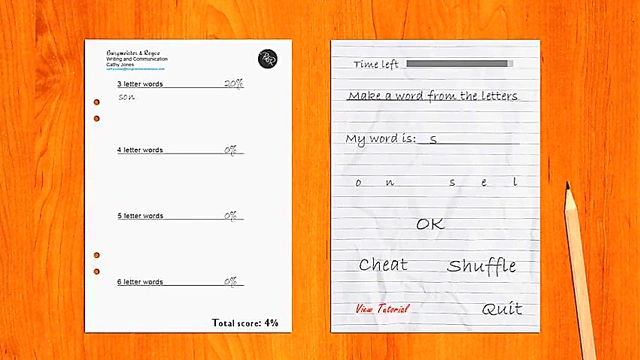 Burgmeister & Royce
Writing and Communication
Cathy Jones
3 letter words 20%
son
4 letter words 0%
5 letter words 0%
6 letter words 0%
Total score: 4%
Time left
Make a word from the letters
My word is: s
o n s e l
OK
Cheat Shuffle
View Tutorial Quit